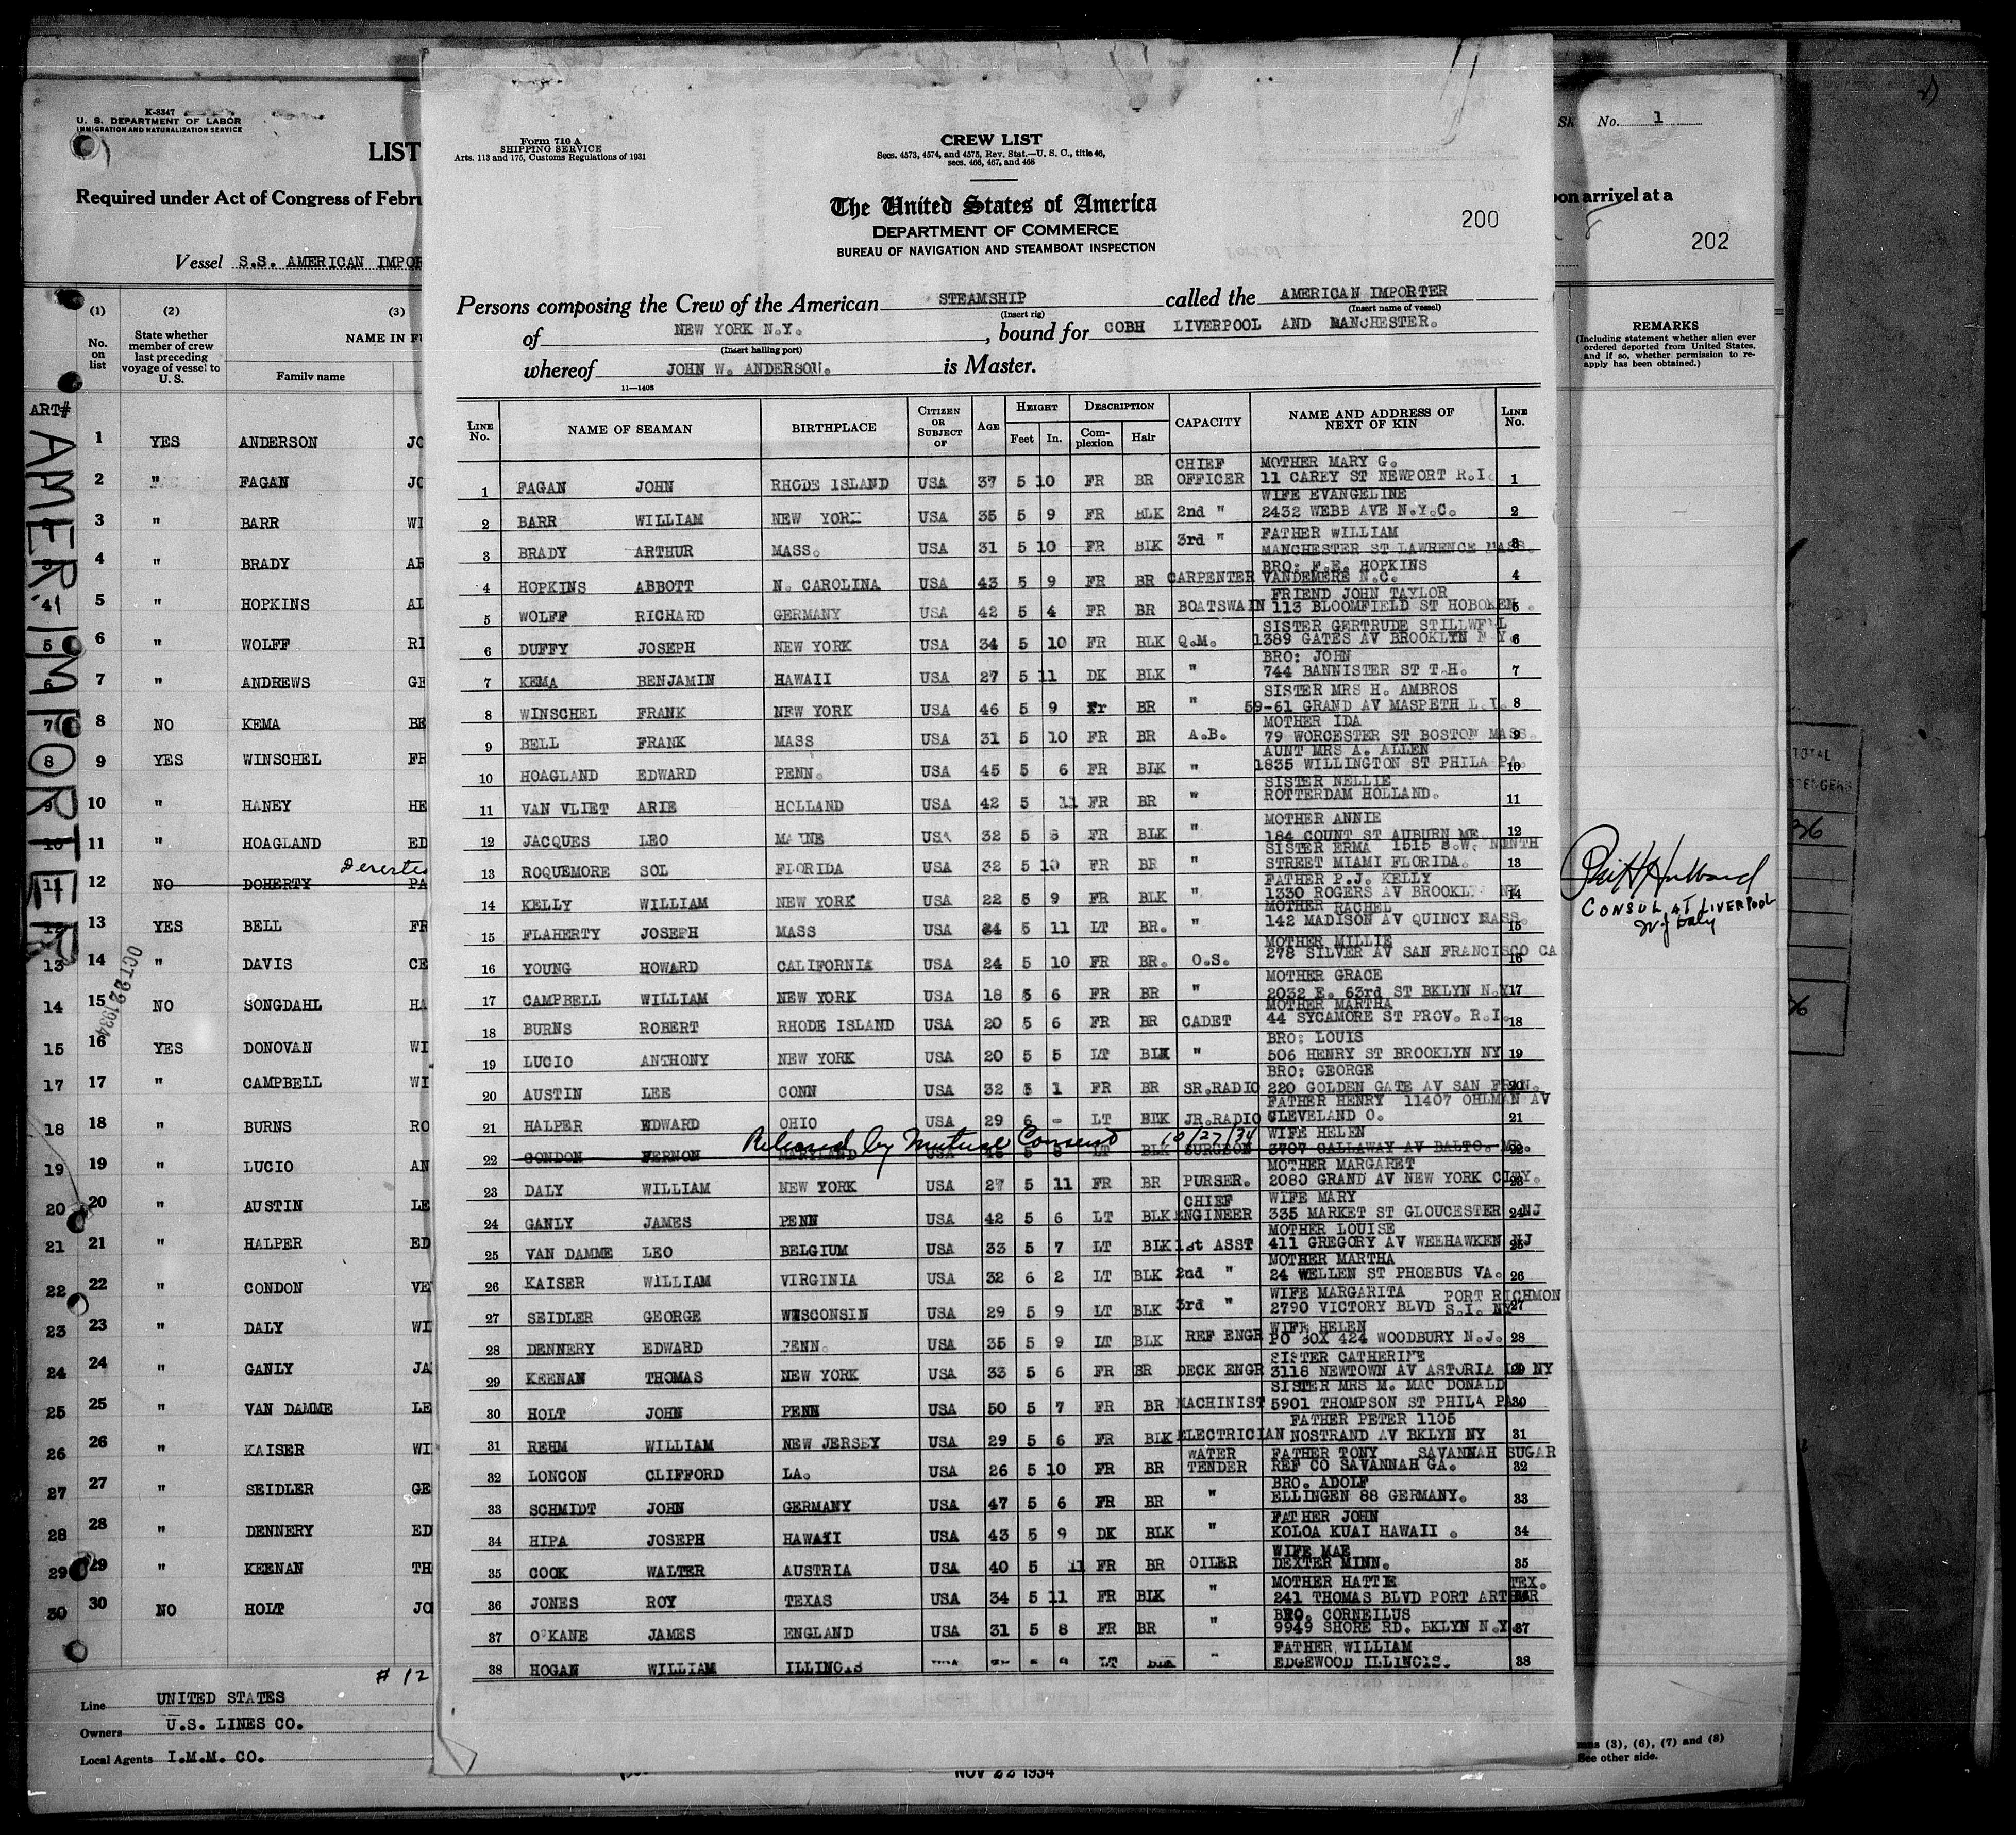 K-8347
U. S. DEPARTMENT OF LABOR
IMMIGRATION AND NATURALIZATION SERVICE
LIST
Required under Act of Congress of Febru
Vessel S.S. AMERICAN IMPOR
(1) (2) (3)
No. on list
State whether member of crew last preceding voyage of vessel to U. S.
NAME IN F
Family name
ART#
AMER. IMPORTER
1 YES ANDERSON JO
2 " FAGAN JO
3 " BARR WI
4 " BRADY AR
41 5 " HOPKINS AL
5 6 " WOLFF RI
6 7 " ANDREWS GE
7 8 NO KEMA BE
8 9 YES WINSCHEL FR
9 10 " HANEY HE
10 11 " HOAGLAND ED
Deserte
11 12 NO DOHERTY PA
12 13 YES BELL FR
13 14 " DAVIS CE
OCT 22 1934
14 15 NO SONGDAHL HA
15 16 YES DONOVAN WI
17 17 " CAMPBELL WI
18 18 " BURNS RO
19 19 " LUCIO AN
20 20 " AUSTIN LE
21 21 " HALPER ED
22 22 " CONDON VE
23 23 " DALY WI
24 24 " GANLY JA
25 25 " VAN DAMME LE
26 26 " KAISER WI
27 27 " SEIDLER GE
28 28 " DENNERY ED
29 29 " KEENAN TH
30 30 NO HOLT JO
# 12
Line UNITED STATES
Owners U.S. LINES CO.
Local Agents I.M.M. CO.
Form 710 A
SHIPPING SERVICE
Arts. 113 and 175, Customs Regulations of 1931
CREW LIST
Secs. 4573, 4574, and 4575, Rev. Stat.—U. S. C., title 46,
secs. 466, 467, and 468
The United States of America
DEPARTMENT OF COMMERCE
BUREAU OF NAVIGATION AND STEAMBOAT INSPECTION
200
Persons composing the Crew of the American STEAMSHIP called the AMERICAN IMPORTER
(Insert rig) (Insert name of vessel)
of NEW YORK N.Y. , bound for COBH LIVERPOOL AND MANCHESTER.
(Insert hailing port)
whereof JOHN W. ANDERSON. is Master.
11—1408
LINE No. NAME OF SEAMAN BIRTHPLACE CITIZEN OR SUBJECT OF AGE HEIGHT Feet In. DESCRIPTION Complexion Hair CAPACITY NAME AND ADDRESS OF NEXT OF KIN LINE No.
1 FAGAN JOHN RHODE ISLAND USA 37 5 10 FR BR CHIEF OFFICER MOTHER MARY G. 11 CAREY ST NEWPORT R.I. 1
2 BARR WILLIAM NEW YORK USA 35 5 9 FR BLK 2nd " WIFE EVANGELINE 2432 WEBB AVE N.Y.C. 2
3 BRADY ARTHUR MASS. USA 31 5 10 FR BLK 3rd " FATHER WILLIAM MANCHESTER ST LAWRENCE MASS. 3
4 HOPKINS ABBOTT N. CAROLINA USA 43 5 9 FR BR CARPENTER BRO: F.E. HOPKINS VANDEMERE N.C. 4
5 WOLFF RICHARD GERMANY USA 42 5 4 FR BR BOATSWAIN FRIEND JOHN TAYLOR 113 BLOOMFIELD ST HOBOKEN. 5
6 DUFFY JOSEPH NEW YORK USA 34 5 10 FR BLK Q.M. SISTER GERTRUDE STILLWELL 1389 GATES AV BROOKLYN N Y 6
7 KEMA BENJAMIN HAWAII USA 27 5 11 DK BLK " BRO: JOHN 744 BANNISTER ST T.H. 7
8 WINSCHEL FRANK NEW YORK USA 46 5 9 Fr BR " SISTER MRS H. AMBROS 59-61 GRAND AV MASPETH L.I. 8
9 BELL FRANK MASS USA 31 5 10 FR BR A.B. MOTHER IDA 79 WORCESTER ST BOSTON MASS. 9
10 HOAGLAND EDWARD PENN. USA 45 5 6 FR BLK " AUNT MRS A. ALLEN 1835 WILLINGTON ST PHILA PA. 10
11 VAN VLIET ARIE HOLLAND USA 42 5 11 FR BR " SISTER NELLIE ROTTERDAM HOLLAND. 11
12 JACQUES LEO MAINE USA 32 5 FR BLK " MOTHER ANNIE 184 COUNT ST AUBURN ME. 12
13 ROQUEMORE SOL FLORIDA USA 32 5 10 FR BR " SISTER ERMA 1515 S.W. NINTH STREET MIAMI FLORIDA. 13
14 KELLY WILLIAM NEW YORK USA 22 5 9 FR BLK " FATHER P.J. KELLY 1330 ROGERS AV 14
15 FLAHERTY JOSEPH MASS USA 24 5 11 LT BR. " MOTHER RACHEL 142 MADISON AV QUINCY MASS. 15
16 YOUNG HOWARD CALIFORNIA USA 24 5 10 FR BR. O.S. MOTHER MILLIE 278 SILVER AV SAN FRANCISCO CA 16
17 CAMPBELL WILLIAM NEW YORK USA 18 5 6 FR BR " MOTHER GRACE 2032 E. 63rd ST BKLYN N.Y. 17
18 BURNS ROBERT RHODE ISLAND USA 20 5 6 FR BR CADET MOTHER MARTHA 44 SYCAMORE ST PROV. R.I. 18
19 LUCIO ANTHONY NEW YORK USA 20 5 5 LT BLK " BRO: LOUIS 506 HENRY ST BROOKLYN NY 19
20 AUSTIN LEE CONN USA 32 5 1 FR BR SR.RADIO BRO: GEORGE 220 GOLDEN GATE AV SAN FRAN. 20
21 HALPER EDWARD OHIO USA 29 6 - LT BLK JR.RADIO FATHER HENRY 11407 OHLMAN AV CLEVELAND O. 21
Released by Mutual Consent 10/27/34
22 CONDON VERNON MARYLAND USA 45 5 8 LT BLK SURGEON WIFE HELEN 3707 CALLAWAY AV BALTO. MD. 22
23 DALY WILLIAM NEW YORK USA 27 5 11 FR BR PURSER. MOTHER MARGARET 2080 GRAND AV NEW YORK CITY. 23
24 GANLY JAMES PENN USA 42 5 6 LT BLK CHIEF ENGINEER WIFE MARY 335 MARKET ST GLOUCESTER NJ 24
25 VAN DAMME LEO BELGIUM USA 33 5 7 LT BLK 1st ASST MOTHER LOUISE 411 GREGORY AV WEEHAWKEN NJ 25
26 KAISER WILLIAM VIRGINIA USA 32 6 2 LT BLK 2nd " MOTHER MARTHA 24 WELLEN ST PHOEBUS VA. 26
27 SEIDLER GEORGE WISCONSIN USA 29 5 9 LT BLK 3rd " WIFE MARGARITA 2790 VICTORY BLVD PORT RICHMON S.I. NY 27
28 DENNERY EDWARD PENN. USA 35 5 9 LT BLK REF ENGR WIFE HELEN PO BOX 424 WOODBURY N.J. 28
29 KEENAN THOMAS NEW YORK USA 33 5 6 FR BR DECK ENGR SISTER CATHERINE 3118 NEWTOWN AV ASTORIA NY 29
30 HOLT JOHN PENN USA 50 5 7 FR BR MACHINIST SISTER MRS M. MAC DONALD 5901 THOMPSON ST PHILA PA 30
31 REHM WILLIAM NEW JERSEY USA 29 5 6 FR BLK ELECTRICIAN FATHER PETER 1105 NOSTRAND AV BKLYN NY 31
32 LONCON CLIFFORD LA. USA 26 5 10 FR BR WATER TENDER FATHER TONY SAVANNAH SUGAR REF CO SAVANNAH GA. 32
33 SCHMIDT JOHN GERMANY USA 47 5 6 FR BR " BRO. ADOLF ELLINGEN 88 GERMANY. 33
34 HIPA JOSEPH HAWAII USA 43 5 9 DK BLK " FATHER JOHN KOLOA KUAI HAWAII . 34
35 COOK WALTER AUSTRIA USA 40 5 11 FR BR OILER WIFE MAE DEXTER MINN. 35
36 JONES ROY TEXAS USA 34 5 11 FR BLK " MOTHER HATTIE 241 THOMAS BLVD PORT ARTHUR TEX. 36
37 O'KANE JAMES ENGLAND USA 31 5 8 FR BR " BRO. CORNEILUS 9949 SHORE RD. BKLYN N.Y. 37
38 HOGAN WILLIAM ILLINOIS LT " FATHER WILLIAM EDGEWOOD ILLINOIS. 38
NOV 22 1934
No. 1
on arrival at a
8
202
REMARKS
(Including statement whether alien ever ordered deported from United States, and if so, whether permission to reapply has been obtained.)
TOTAL
36
Hubbard
CONSUL AT LIVERPOOL
W J Daly
36
mns (3), (6), (7) and (8)
See other side.